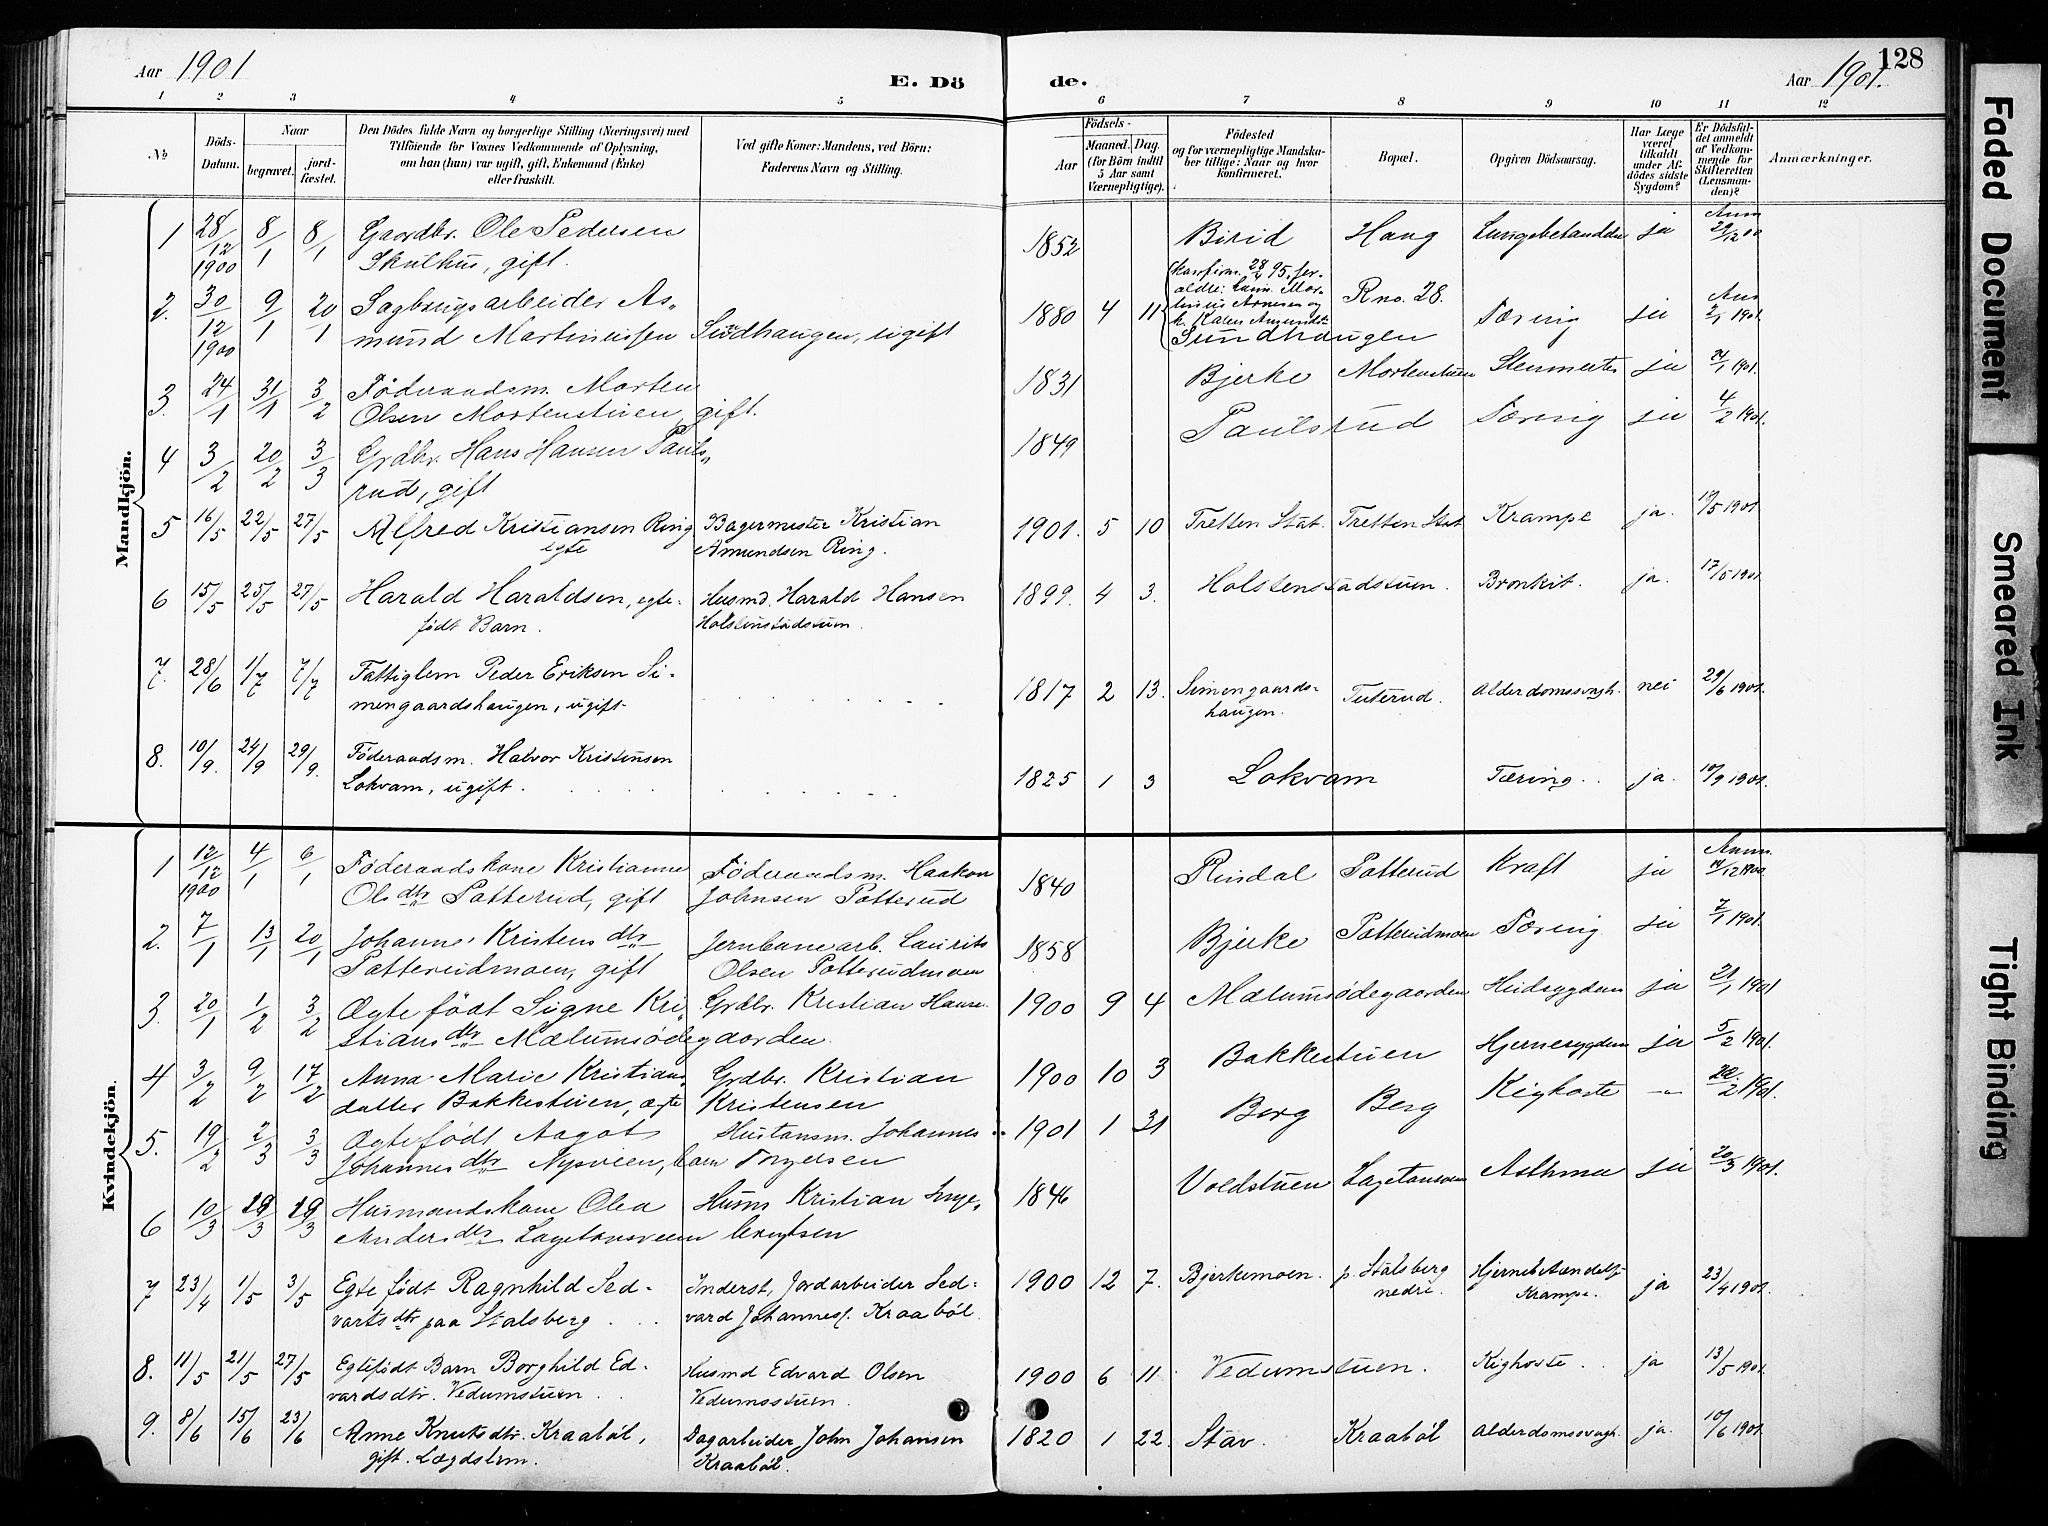 Aar 1901
E. Dö
de.
Aar 1901.
128
1 2 3 4 5 6 7 8 9 10 11 12
No
Döds-
Datum.
Naar
begravet.
jord-
fæstet.
Den Dödes fulde Navn og borgerlige Stilling (Næringsvei) med
Tilföiende for Voxnes Vedkommende af Oplysning,
om han (hun) var ugift, gift, Enkemand (Enke)
eller fraskilt.
Ved gifte Koner: Mandens, ved Börn:
Faderens Navn og Stilling.
Födsels-
Aar
Maaned. Dag.
(for Börn indtil
5 Aar samt
Værnepligtige).
Födested
og for værnepligtige Mandska-
ber tillige: Naar og hvor
konfirmeret.
Bopæl.
Opgiven Dödsaarsag.
Har Læge
været
tilkaldt
under Af-
dödes sidste
Sygdom?
Er Dödsfal-
det anmeldt
af Vedkom-
mende for
Skifteretten
(Lensman-
den)?
Anmærkninger.
Mandkjön.
1 28/12 1900 8/1 8/1 Gaardbr. Ole Pedersen 1852 Birid Haug Lungebetændelse ja Anm 29/12 00
Skulhus, gift.
2. 30/12 1900 9/1 20/1 Sagbrugsarbeider As- 1880 4 11 R no. 28. Tæring ja Anm 2/1 1901
mund Martinussen Sundhaugen, ugift Sundhaugen
3. 24/1 31/1 3/2 Föderaadsm. Morten 1831 Bjerke Mortenstuen ja 24/1 1901.
Olsen Mortenstuen, gift.
4 3/2 20/2 3/3 Grdbr. Hans Hansen Pauls- 1849 Paulsrud Tæring ja 4/2 1901.
rud, gift
5 16/5 22/5 27/5 Alfred Kristiansen Ring Bagermester Kristian 1901. 5 10 Tretten Stat. Tretten Stat Krampe ja. 19/5 1901
egte Amundsen Ring.
6 15/5 25/5 27/5 Harald Haraldsen, egte- Husmd. Harald Hansen 1899. 4 3. Holstenstadstuen. Bronkit. ja. 17/5 1901
födt Barn. Holstenstadstuen.
7. 28/6 1/7 7/7 Fattiglem Peder Eriksen Si- 1817 2 13. Simengaards- Tuterud. Alderdomssvagh. nei 29/6 1901.
mengaardshaugen, ugift. haugen.
8. 10/9. 24/9 29/9. Föderaadsm. Halvor Kristensen 1825 1 3 Lokvam Tæring. ja. 10/9 1901.
Lokvam, ugift.
Kvindekjön.
1 12/12 1900 4/1 6/1 Föderaadskone Kristianne Föderaadsm. Haakon 1840 Rindal Patterud Kraft ja Anm. 14/12 1900
Ols dtr Patterud, gift Johnsen Patterud
2. 7/1 13/1 20/1 Johanne Kristens dtr Jernbanearb. Laurits 1858 Bjerke Patterudmoen Tæring ja 7/1 1901.
Patterudmoen, gift Olsen Patterudmoen
3. 20/1 1/2 3/2 Ægte födt Signe Kri- Grdbr. Kristian Hanse- 1900 9 4 Mælumsödegaarden Hudsygdom ja 21/1 1901
stians dtr Mælumsödegaarden.
4 3/2 9/2 17/2 Anna Marie Kristians- Grdbr. Kristian 1900 10 3 Bakkestuen Hjernesygdom ja 5/2 1901.
datter Bakkestuen, ægte Kristensen
5. 19/2 2/3 3/3 Ægte födt Aagot Hustansm. Johannes 1901 1 31 Berg Berg Kighoste — 20/2 1901.
Johannes dtr Nysveen, barn Torgersen
6 10/3 29/3 29/3 Husmandskone Olea Husm Kristian Inge- 1846 Voldstuen Lagetansveen Asthma ja 20/3 1901.
Anders dtr Lagetansveen brigtsen
7 23/4 1/5 3/5 Egte födt Ragnhild Sed- Inderst, Jordarbeider Sed- 1900 12 7. Bjerkemoen. p. Stalsberg Hjernebetændelse ja 23/4 1901.
varts dtr paa Stalsberg vard Johannes. Kraaböl. nedre. Krampe.
8. 11/5 21/5 27/5 Egtefödt Barn Borghild Ed- Husmd Edvard Olsen 1900 6 11 Vedumstuen. Kighoste. ja 13/5 1901.
vardsdtr. Vedumstuen Vedumsstuen.
9. 8/6 15/6 23/6 Anne Knutsdtr. Kraaböl, Dagarbeider John Johansen 1820 1 22. Stav. Kraaböl Alderdomssvagh. ja. 10/6 1901.
gift. Lægdslem. Kraaböl.
Faded Document
Smeared Ink
Tight Binding